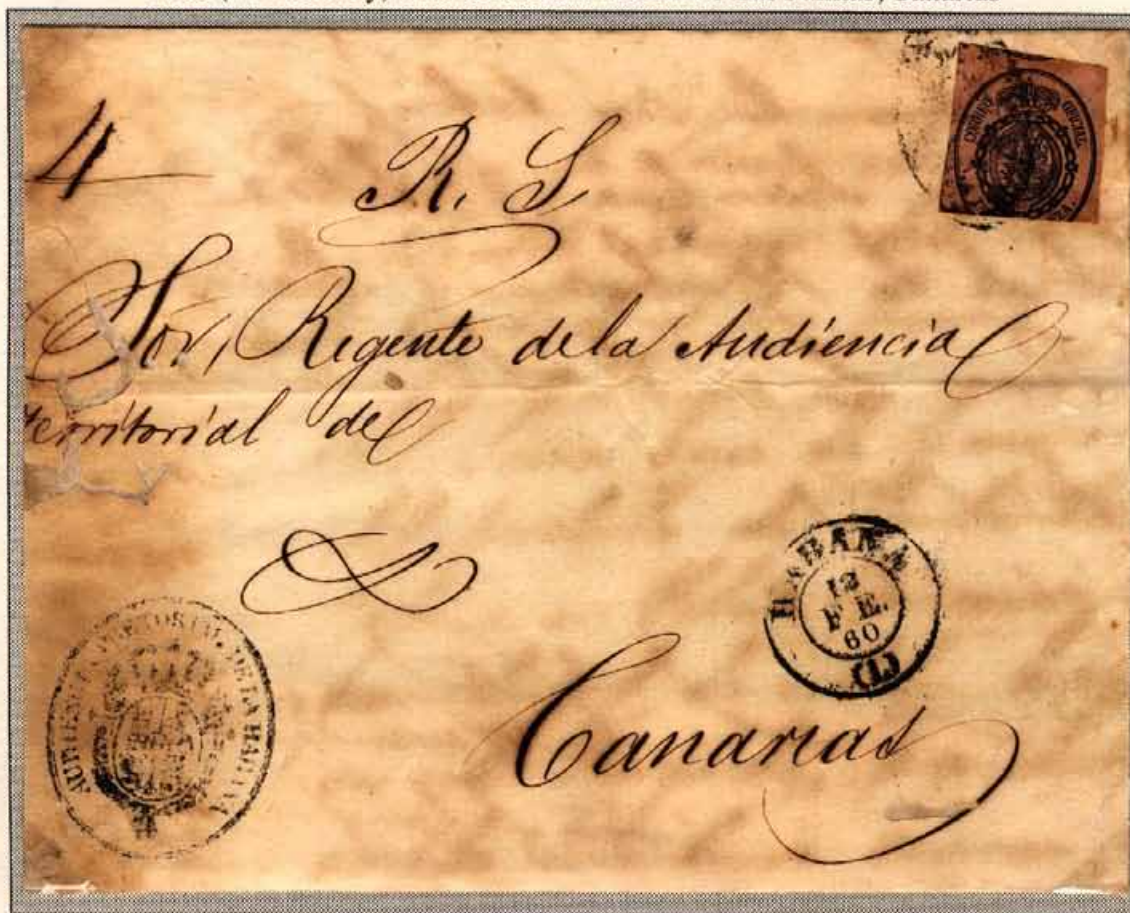 4
R. S
CORREO OFICIAL
Sor, Regente de la Audiencia
territorial de
HABANA
12
FE.
60
(1)
AUDIENCIA TERRITORIAL DE LA HABANA
Canarias